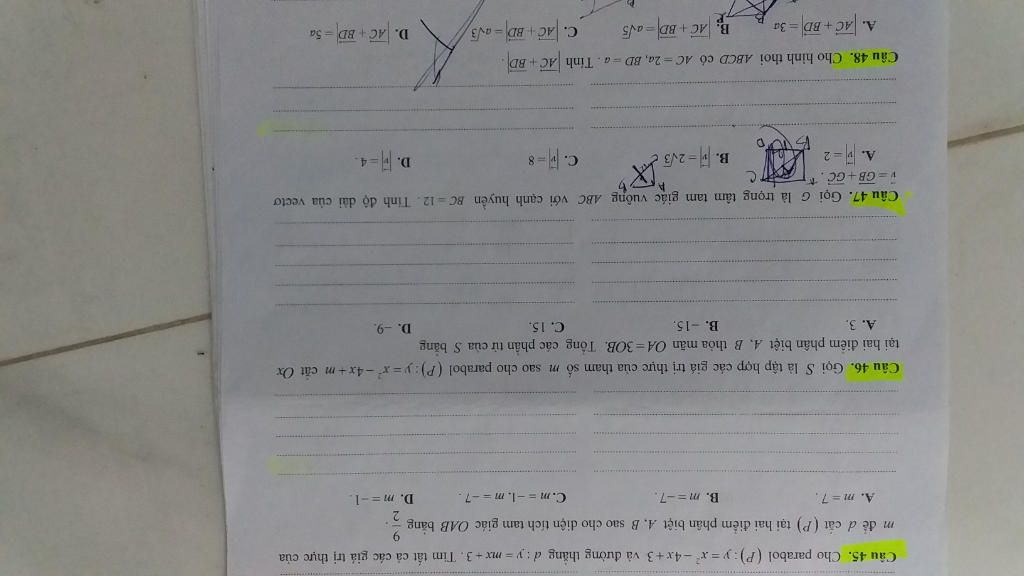 Câu 45. Cho parabol (P): y = x² − 4x + 3 và đường thẳng d : y = mx + 3. Tìm tất cả các giá trị thực của
m để d cắt (P) tại hai điểm phân biệt A, B sao cho diện tích tam giác OAB bằng 9/2.
A. m = 7. B. m = −7. C. m = −1, m = −7. D. m = −1.
Câu 46. Gọi S là tập hợp các giá trị thực của tham số m sao cho parabol (P): y = x² − 4x + m cắt Ox
tại hai điểm phân biệt A, B thỏa mãn OA = 3OB. Tổng các phần tử của S bằng
A. 3. B. −15. C. 15. D. −9.
Câu 47. Gọi G là trọng tâm tam giác vuông ABC với cạnh huyền BC = 12. Tính độ dài của vectơ
v⃗ = GB⃗ + GC⃗.
A. |v⃗| = 2 B. |v⃗| = 2√3 C. |v⃗| = 8 D. |v⃗| = 4.
Câu 48. Cho hình thoi ABCD có AC = 2a, BD = a. Tính |AC⃗ + BD⃗|.
A. |AC⃗ + BD⃗| = 3a B. |AC⃗ + BD⃗| = a√5 C. |AC⃗ + BD⃗| = a√3 D. |AC⃗ + BD⃗| = 5a